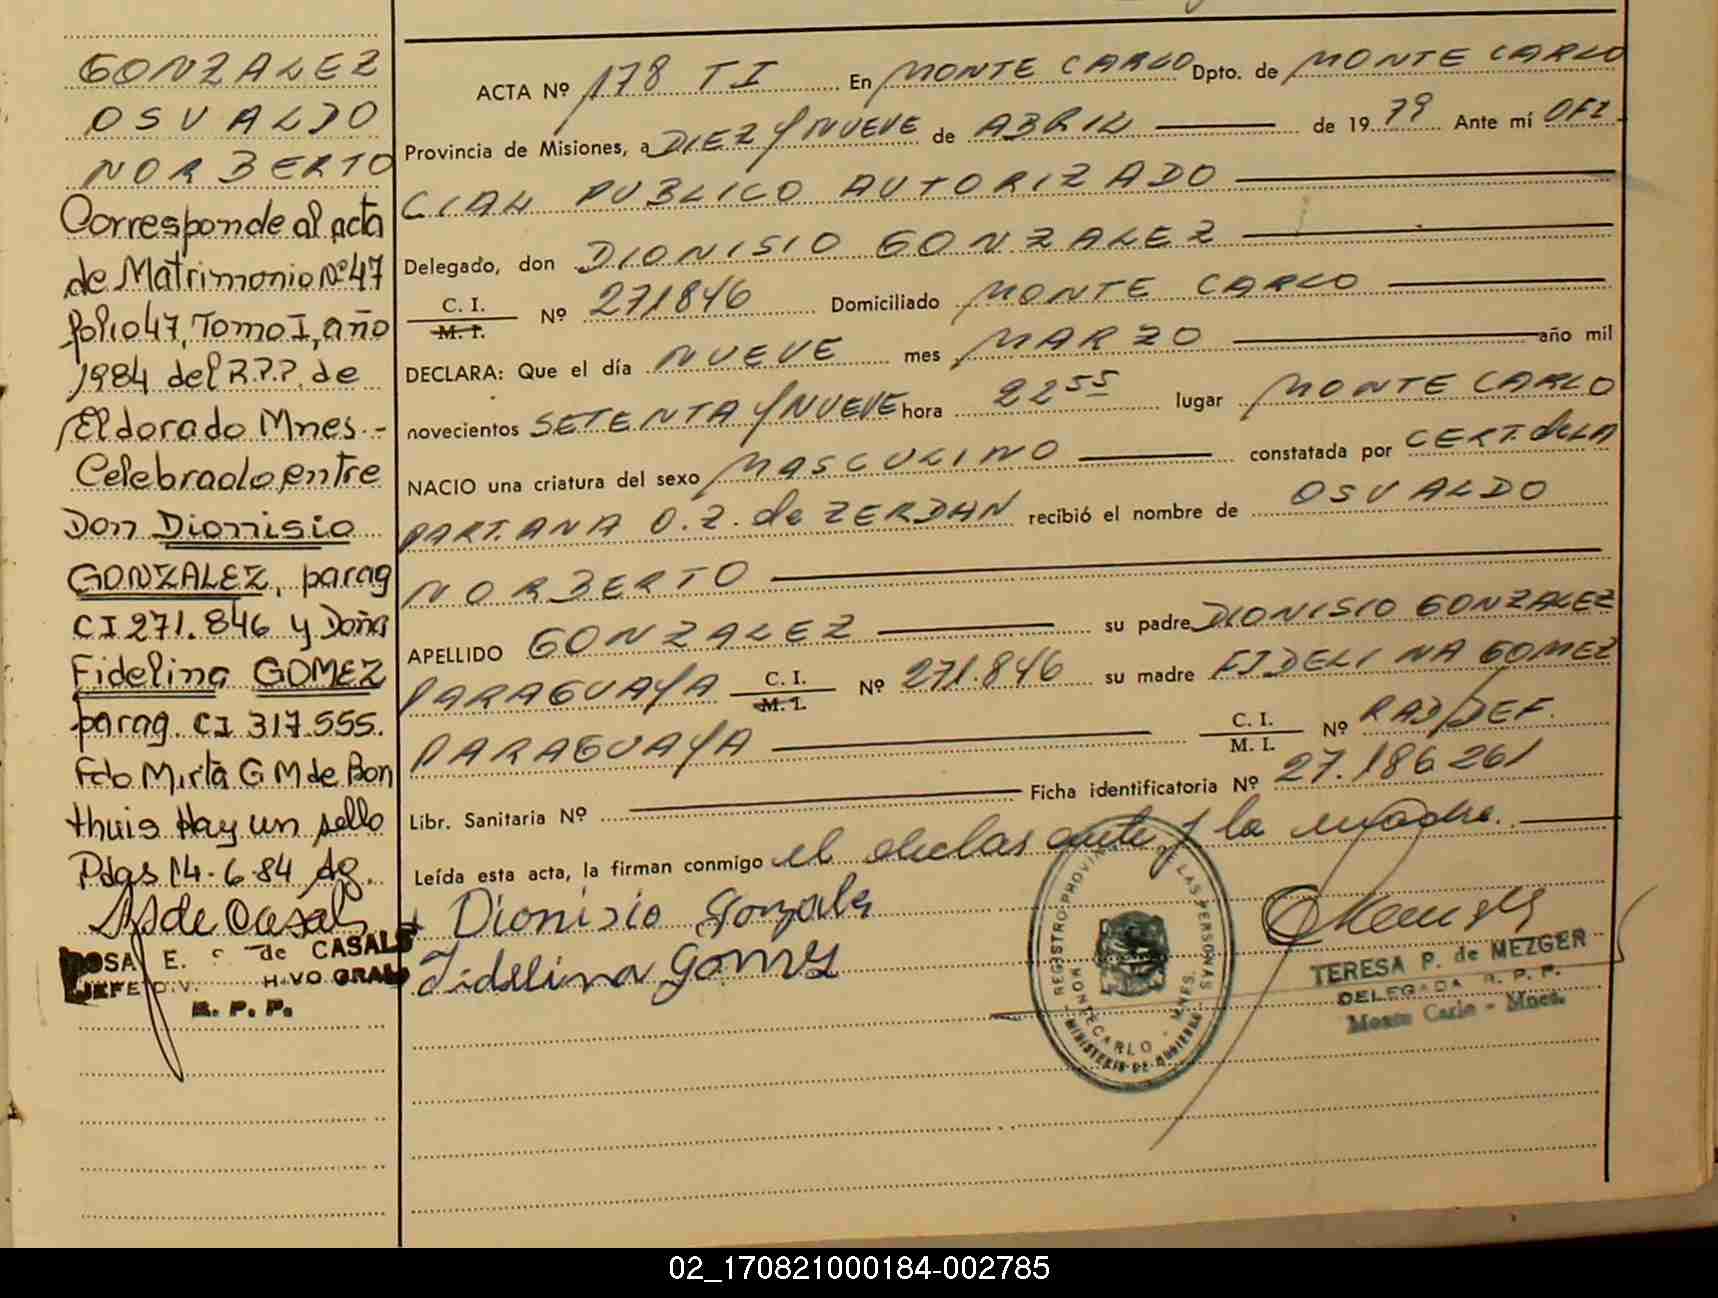 GONZALEZ
OSVALDO
NORBERTO
Corresponde al acta
de Matrimonio Nº 47
folio 47, Tomo I, año
1984 del R.P.P. de
Eldorado Mnes.-
Celebrado entre
Don Dionisio
GONZALEZ, parag
CI 271.846 y Doña
Fidelina GOMEZ
parag. CI 317.555.
Fdo Mirta G M de Bon
thuis Hay un sello
Pdas 14-6-84 dg.
de Casals
ROSA E. de CASALS
JEFE DIV. GRAL
R. P. P.
ACTA Nº 178 TI En MONTE CARLO Dpto. de MONTE CARLO
Provincia de Misiones, a DIEZ y NUEVE de ABRIL de 19 79 Ante mí OFI
CIAL PUBLICO AUTORIZADO
Delegado, don DIONISIO GONZALEZ
C. I.
M. I. Nº 271846 Domiciliado MONTE CARLO
DECLARA: Que el día NUEVE mes MARZO año mil
novecientos SETENTA y NUEVE hora 22 55 lugar MONTE CARLO
NACIO una criatura del sexo MASCULINO constatada por CERT. de LA
PART. ANA O. Z. de ZERDAN recibió el nombre de OSVALDO
NORBERTO
APELLIDO GONZALEZ su padre DIONISIO GONZALEZ
PARAGUAYA C. I.
M. I. Nº 271.846 su madre FIDELINA GOMEZ
PARAGUAYA C. I.
M. I. Nº RAD/DEF.
Libr. Sanitaria Nº Ficha identificatoria Nº 27.186 261
Leída esta acta, la firman conmigo el declarante y la madre.
Dionisio Gonzalez
Fidelina Gomez
REGISTRO PROVINCIAL DE LAS PERSONAS
MONTECARLO - MNES.
MINISTERIO DE GOBIERNO
TERESA P. de MEZGER
DELEGADA R. P. P.
Monte Carlo - Mnes.
02_170821000184-002785